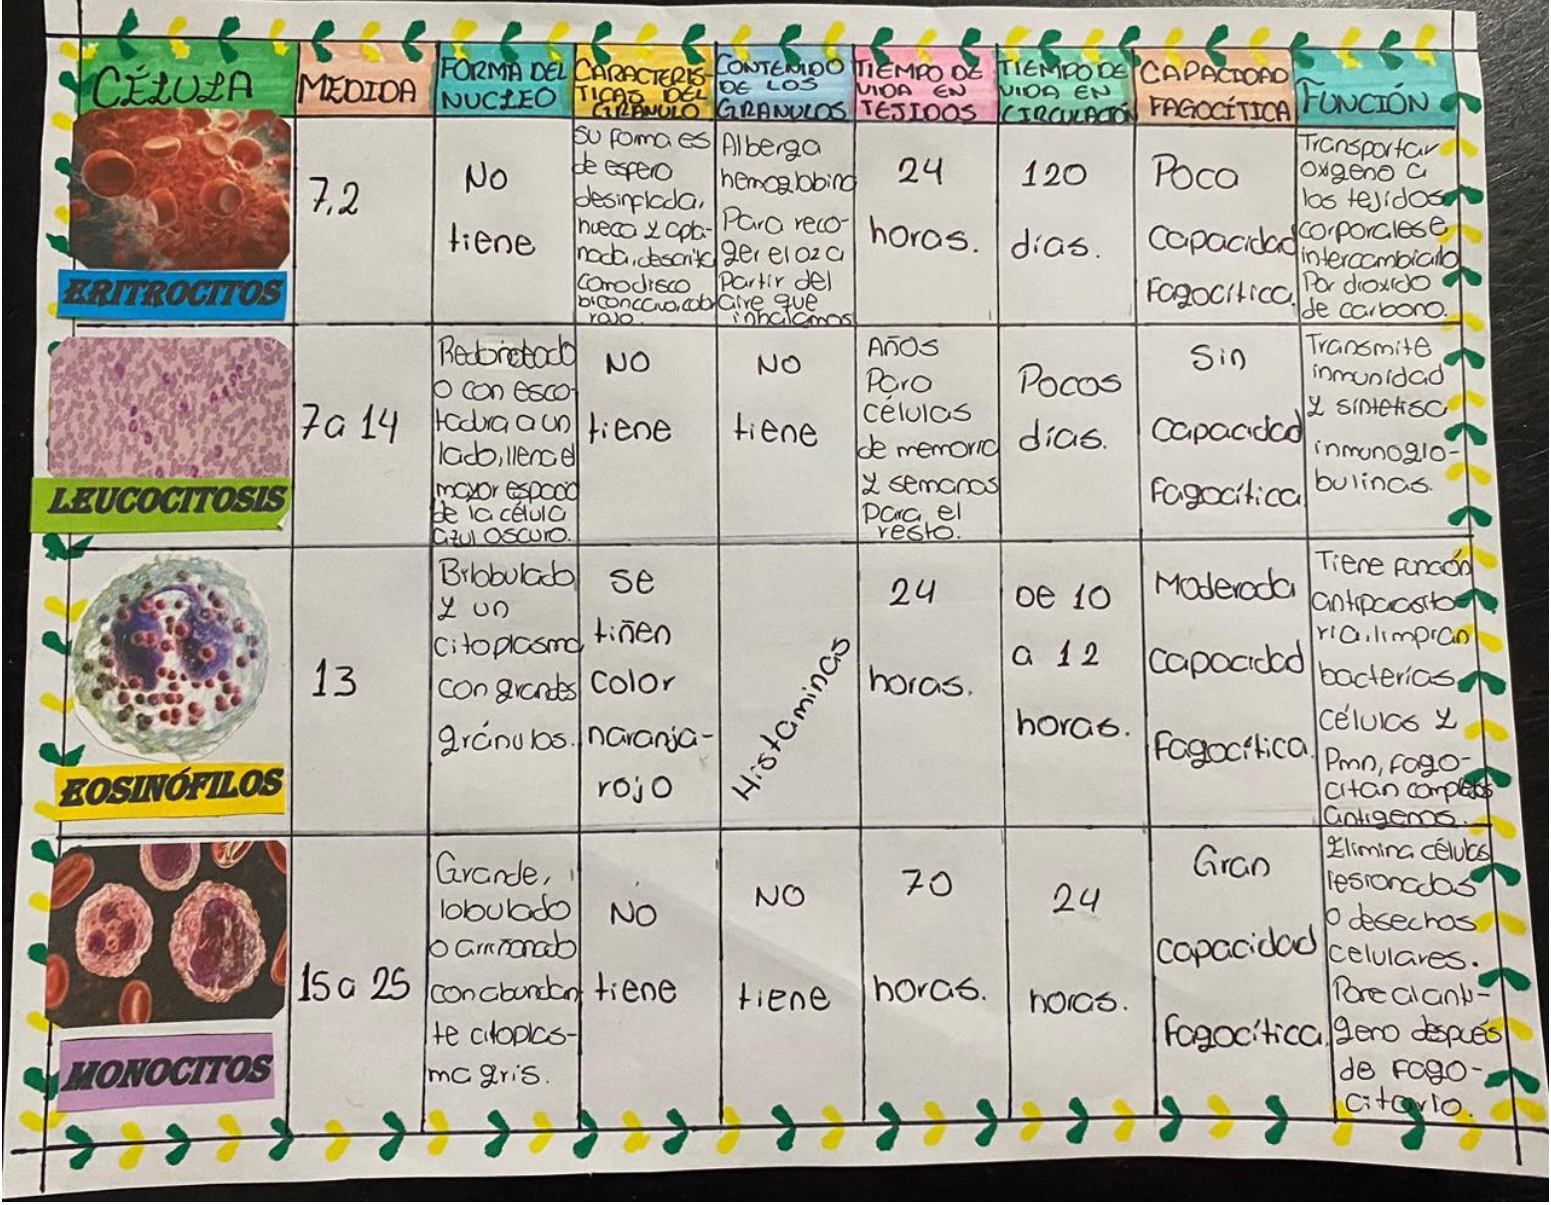 CÉLULA
MEDIDA
FORMA DEL
NUCLEO
CARACTERIS-
TICAS DEL
GRÁNULO
CONTENIDO
DE LOS
GRANULOS
TIEMPO DE
VIDA EN
TEJIDOS
TIEMPO DE
VIDA EN
CIRCULACIÓN
CAPACIDAD
FAGOCÍTICA
FUNCIÓN
ERITROCITOS
7,2
No
tiene
Su forma es
de espero
desinflada,
hueca y apla-
nada, descrita
como disco
biconcavo, color
rojo.
Alberga
hemoglobina
Para reco-
ger el oz a
Partir del
aire que
inhalamos
24
horas.
120
días.
Poca
Capacidad
Fagocítica.
Transportar
oxigeno a
los tejidos
corporales e
intercambiarlo
Por dioxido
de carbono.
LEUCOCITOSIS
7 a 14
Redondeado
o con esco-
tadura a un
lado, llena el
mayor espacio
de la célula
azul oscuro.
NO
tiene
NO
tiene
Años
Para
células
de memoria
y semanas
Para el
resto.
Pocos
días.
Sin
capacidad
Fagocítica
Transmite
inmunidad
y sintetisa
inmunoglo-
bulinas.
EOSINÓFILOS
13
Bilobulado
y un
citoplasma
con grandes
gránulos.
se
tiñen
color
naranja-
rojo
Histaminas
24
horas.
De 10
a 12
horas.
Moderada
capacidad
Fagocítica
Tiene función
antiparasita-
ria, limpian
bacterias,
células y
Pmn, Fago-
citan complejos
antigenos.
MONOCITOS
15 a 25
Grande,
lobulado
o arriñonado
con abundan
te citoplas-
ma gris.
No
tiene
NO
tiene
70
horas.
24
horas.
Gran
capacidad
Fagocítica.
Elimina células
lesionadas
o desechos
celulares.
al antí-
geno después
de Fago-
citarlo.